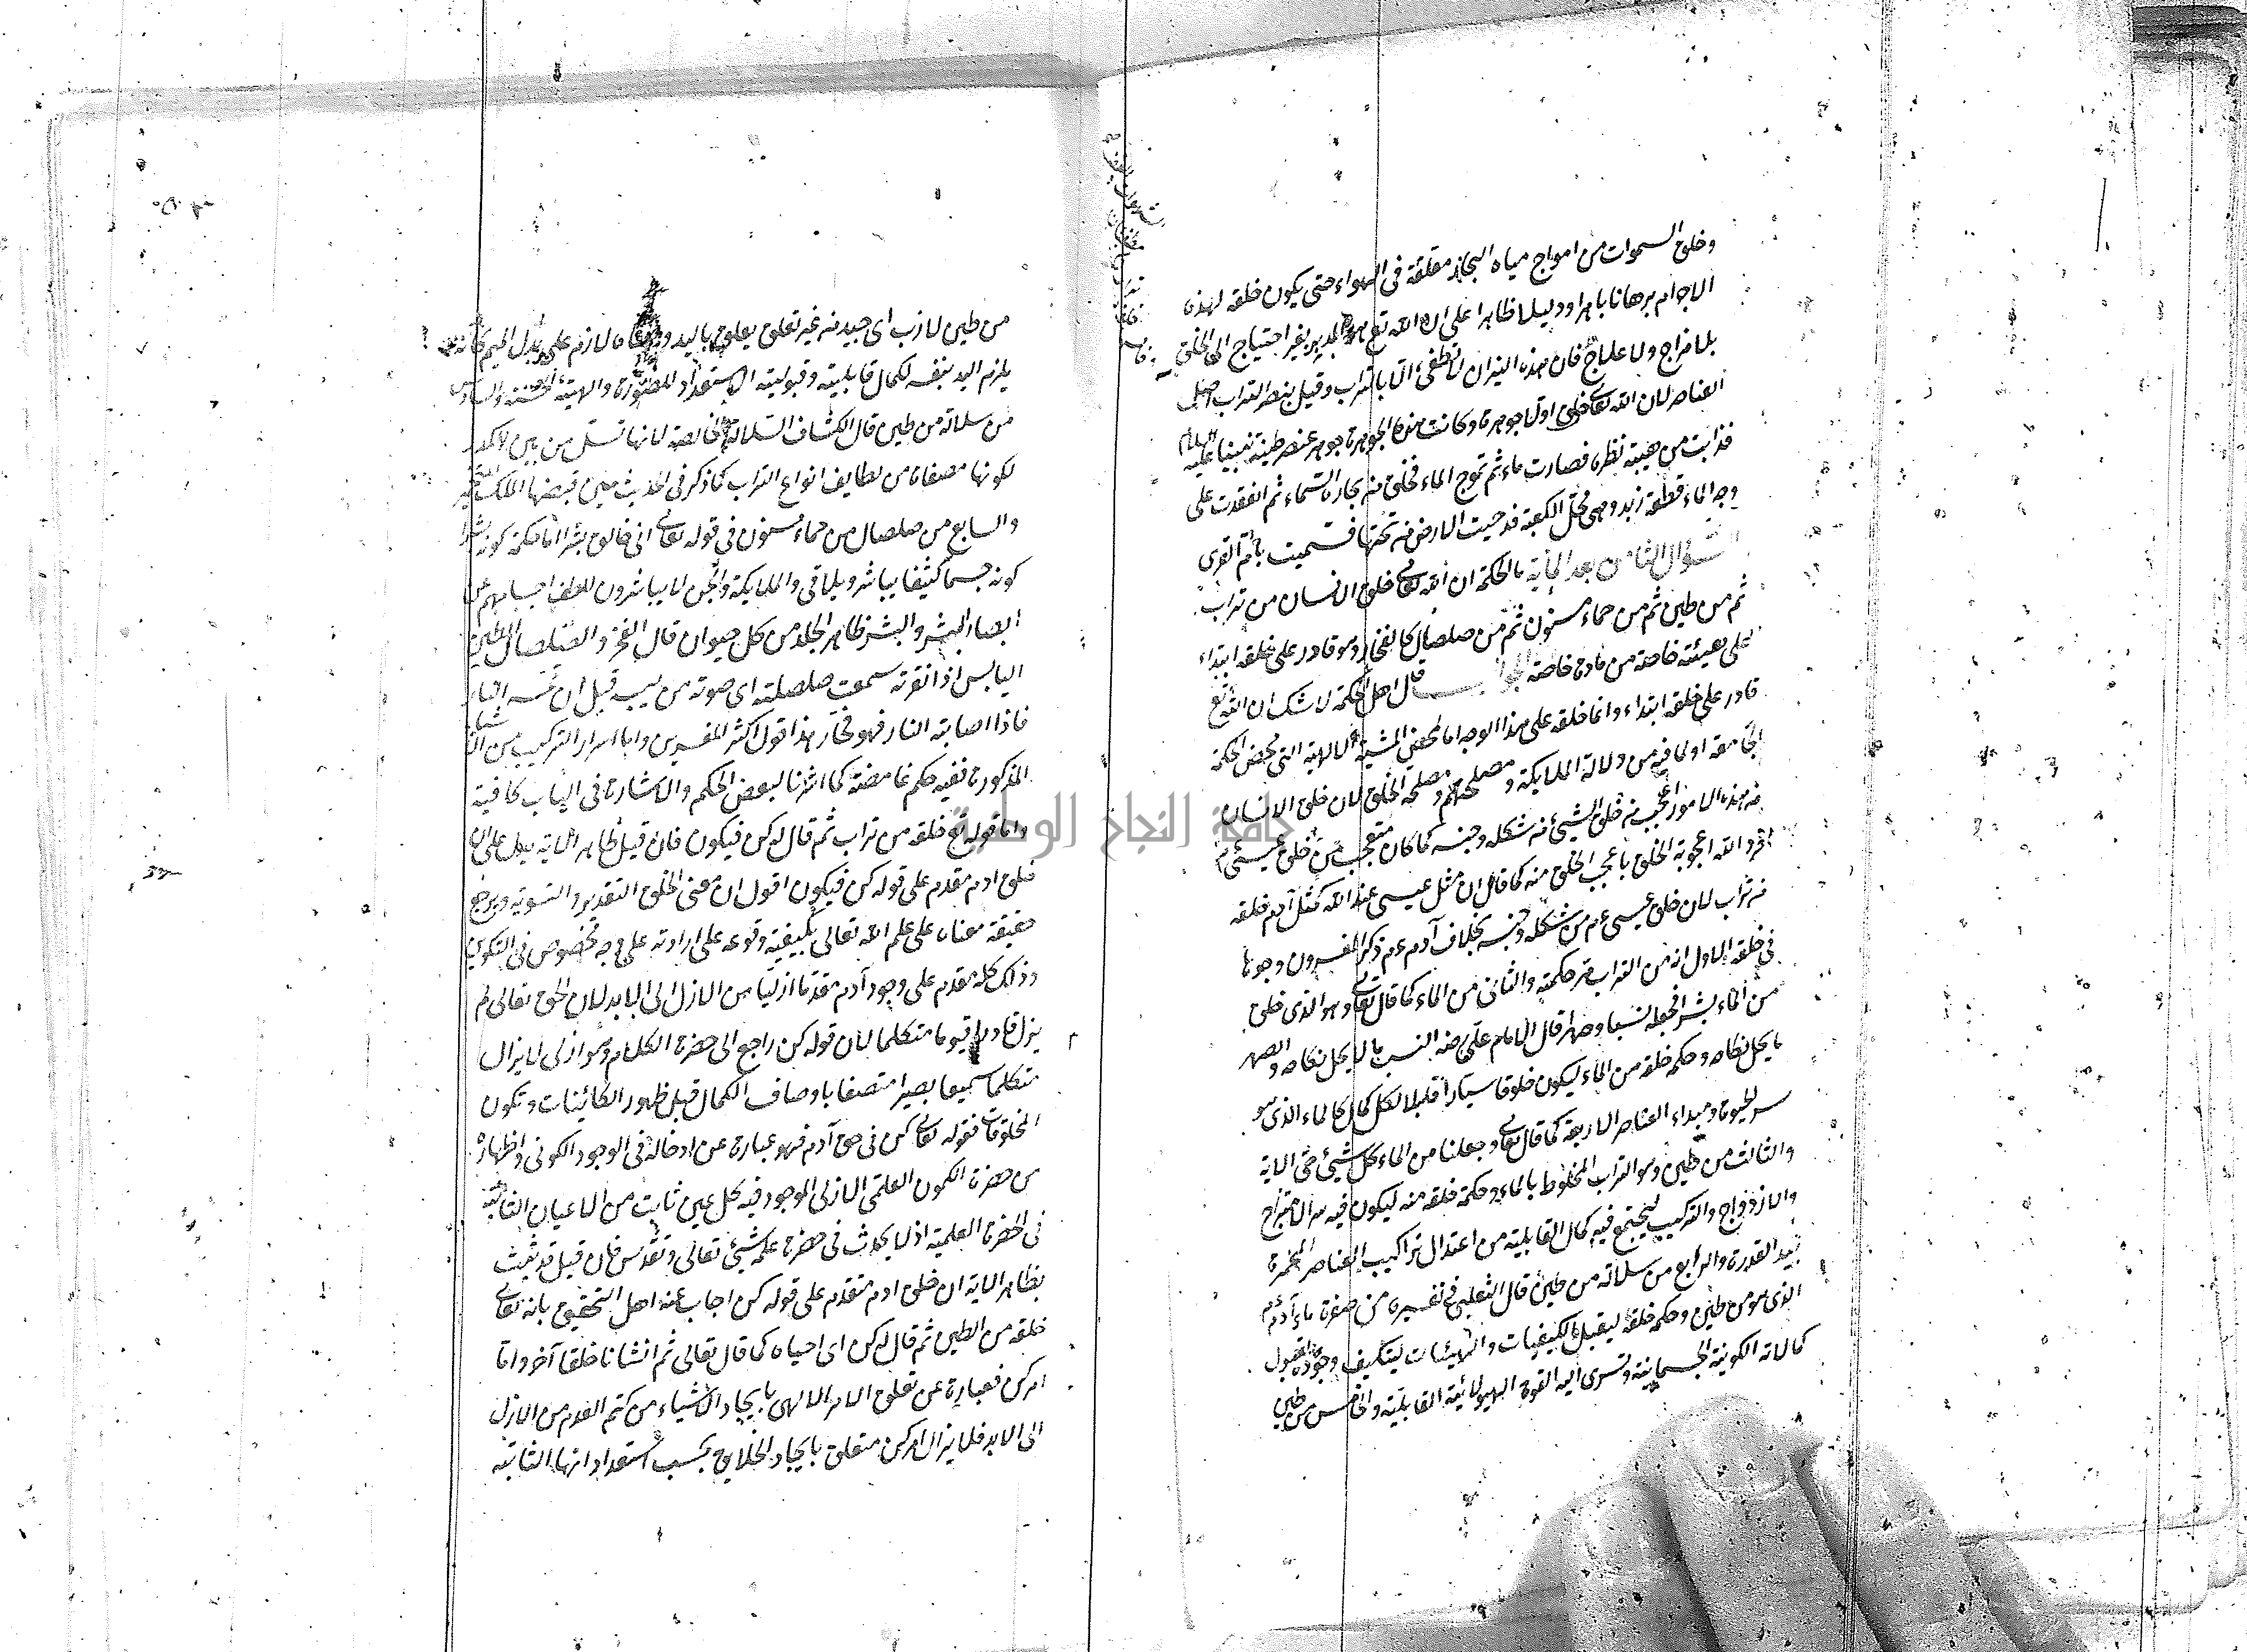 وخلق السموات من امواج مياه البحار معلقة فى الهواء حتى يكون خلقه لهذه
الاجرام برهانا باهرا ودليلا ظاهرا على ان الله تع المدبر بغير احتياج الى الخلق
بلا مزاج ولا علاج فان هذه النيران لا تطفى الا بالتراب وقيل عنصر التراب اصل
العناصر لان الله تعالى خلق اولا جوهرة وكانت هذه الجوهرة جوهر عنصر طينة نبينا عليه السلام
فذابت من هيبة نظره فصارت ماء ثم تموج الماء فخلق من بخاره السماء ثم انعقدت على
وجه الماء قطعة زبد وهى محل الكعبة فدحيت الارض من تحتها فسميت بام القرى
السؤال الثامن بعد المأية ما الحكمة ان الله تعالى خلق الانسان من تراب
ثم من طين ثم من حماء مسنون ثم من صلصال كالفخار وهو قادر على خلقه ابتداء
على هيئته خاصة من مادة خاصة الجواب قال اهل الحكمة لا شك ان الله تع
قادر على خلقه ابتداء وانما خلقه على هذا الوجه اما لمحض المشية الالهية التى محض الحكمة
الجامعة او لما فيه من دلالة الملايكة ومصلحتهم ومصلحة الخلق لان خلق الانسان
من هذه الامور اعجب من خلق الشيئ من شكله وجنسه كما كان متعجب من خلق عيسى
افرد الله اعجوبة الخلق باعجب الخلق منه كما قال ان مثل عيسى عند الله كمثل آدم خلقه
من تراب لان خلق عيسى عم من شكله وجنسه بخلاف آدم عم ذكر المفسرون وجوها
فى خلقه الاول انه من التراب مر حكمته والثانى من الماء كما قال تعالى وهو الذى خلق
من الماء بشرا فجعله نسبا وصهرا قال الامام على رضه النسب ما لا يحل نكاحه والصهر
ما يحل نكاحه وحكمة خلقه من الماء ليكون خلوقا سيارا قابلا لكل كمال كالماء الذى هو
سر الحيوة ومبداء العناصر الاربعة كما قال تعالى وجعلنا من الماء كل شيئ حى الاية
والثالث من طين وهو التراب المخلوط بالماء وحكمة خلقه منه ليكون فيه سر الامتزاج
والازدواج والتركيب ليجتمع فيه كمال القابلية من اعتدال تراكيب العناصر المخمرة
بيد القدرة والرابع من سلالة من طين قال الثعلبى فى تفسيره من صفوة ماء آدم
الذى هو من طين وحكمة خلقه ليقبل الكيفيات والهيئات ليتكيف وجوده لقبول
كمالاته الكونية الجسمانية وتسرى اليه القوة الهيولانية القابلية والخامس من طين
من طين لازب اى جيد منه غير تعلق يعلق باليد لازم على بدل الميم كانه
يلزم اليد بنفسه لكمال قابليته وقبوليته الاستعداد للصورة والهيئة الحسنة والسادس
من سلالة من طين قال الكشاف السلالة الخالصة لانها تسل من بين الكدر
لكونها مصفاة من لطايف انواع التراب كما ذكر فى الحديث حين قبضها الملك
والسابع من صلصال من حماء مسنون فى قوله تعالى انى خالق بشرا اما حكمة كونه بشرا
كونه جسما كثيفا يباشر ويلاقى والملايكة والجن لا يباشرون للطف اجسامهم عن
ابصار البشر والبشر ظاهر الجلد من كل حيوان قال الفخر والصلصال الطين
اليابس اذا نقرته سمعت صلصلته اى صوته من يبسه قبل ان تمسه النار
فاذا اصابته النار فهو فخار هذا قول اكثر المفسرين واما اسرار التركيب من
المذكورة ففيه حكم غامضة كما اشرنا لبعض الحكم والاشارة فى الباب كافية
واما قوله تع خلقه من تراب ثم قال له كن فيكون فان قيل ظاهر الاية يدل على ان
خلق ادم مقدم على قوله كن فيكون اقول ان معنى الخلق التقدير والتسوية ويرجع
حقيقة معناه على علم الله تعالى بكيفية وقوعه على ارادته على وجه مخصوص فى التكوين
وذلك كله مقدم على وجود آدم مقدما ازليا من الازل الى الابد لان الحق تعالى لم
يزل قادرا قيوما متكلما لان قوله كن راجع الى حضرة الكلام وهو ازلى لا يزال
متكلما سميعا بصيرا متصفا باوصاف الكمال قبل ظهور الكائينات وتكون
المخلوقات فقوله تعالى كن فى حق آدم فهو عبارة عن ادخاله فى الوجود الكونى واظهاره
من حضرة الكمون العلمى الازلى الموجود فيه كل عين ثابت من الاعيان الثابتة
فى الحضرة العلمية اذ لا يحدث فى حضرة علمه شيئ تعالى وتقدس فان قيل قد ثبت
بظاهر الاية ان خلق ادم متقدم على قوله كن اجاب عنه اهل التحقيق بانه تعالى
خلقه من الطين ثم قال له كن اى احياه كما قال تعالى ثم انشاناه خلقا آخر واما
امر كن فعبارة عن تعلق الامر الالهى بايجاد الاشياء من كتم العدم من الازل
الى الابد فلا يزال امر كن متعلق بايجاد الخلايق بحسب استعداداتها الثابتة
جامعة النجاح الوطنية